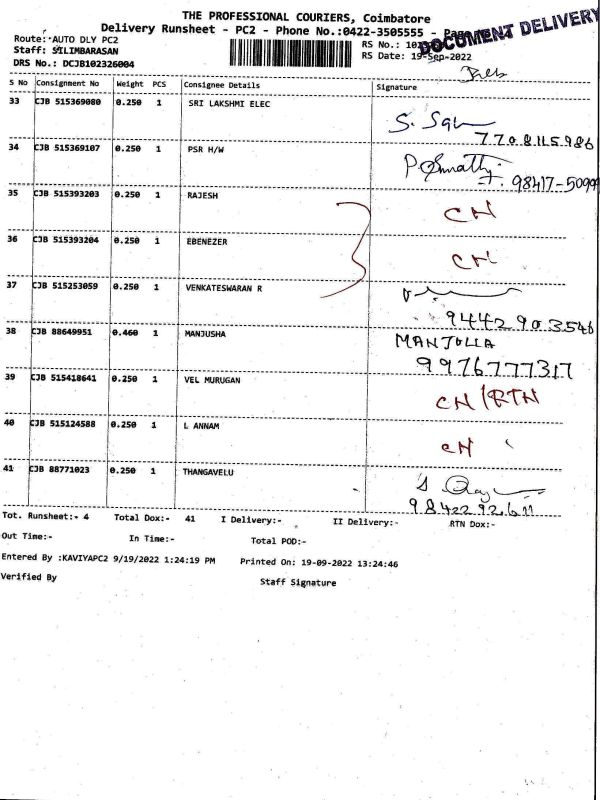 THE PROFESSIONAL COURIERS, Coimbatore
Delivery Runsheet - PC2 - Phone No.:0422-3505555 -
DOCUMENT DELIVERY
Route:-AUTO DLY PC2
RS No.:
Staff: SILIMBARASAN
RS Date: 19-Sep-2022
DRS No.: DCJB102326004
S No Consignment No Weight PCS Consignee Details Signature
33 CJB 515369080 0.250 1 SRI LAKSHMI ELEC
34 CJB 515369107 0.250 1 PSR H/W
35 CJB 515393203 0.250 1 RAJESH CN
36 CJB 515393204 0.250 1 EBENEZER CN
37 CJB 515253059 0.250 1 VENKATESWARAN R
9442903546
38 CJB 88649951 0.460 1 MANJUSHA MANJULLA
9976777317
39 CJB 515418641 0.250 1 VEL MURUGAN CN/RTN
40 CJB 515124588 0.250 1 L ANNAM CN
41 CJB 88771023 0.250 1 THANGAVELU
Tot. Runsheet:- 4 Total Dox:- 41 I Delivery:- II Delivery:- RTN Dox:-
Out Time:- In Time:- Total POD:-
Entered By :KAVIYAPC2 9/19/2022 1:24:19 PM Printed On: 19-09-2022 13:24:46
Verified By Staff Signature